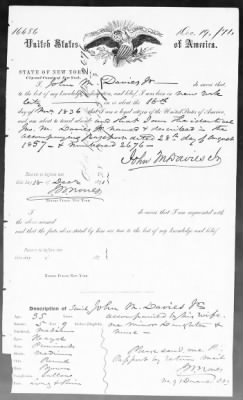 16686
Dec. 19. /71.
United States
of America.
STATE OF NEW YORK
City and County of New York.
I John M. Davies Jr do swear that
to the best of my knowledge and belief, I was born in New York
City on or about the 15th
day of 1836 that I am a legal citizen of the United States of America,
and am about to travel abroad and that I am the identical
Jno. M. Davies Jr. named & described in the
accompanying Passport dated 28th day of August
1857 & numbered 2676
John M Davies Jr
Sworn to before me
this 18 Dec 1871
I do swear that I am acquainted with
the above named
and that the facts above stated by him are true to the best of my knowledge and belief.
Sworn to before me
this day of 187
Notary Public, New York
Description of said John M. Davies Jr
Age, 35 Years
Stature, 5 ft 9 Inches English
Forehead, medium
Eyes,
Nose, Prominent
Mouth, medium
Chin,
Hair, Brown
Complexion,
Face,
accompanied by his wife.
one minor daughter &
nurse
Please send me
Passport by return mail